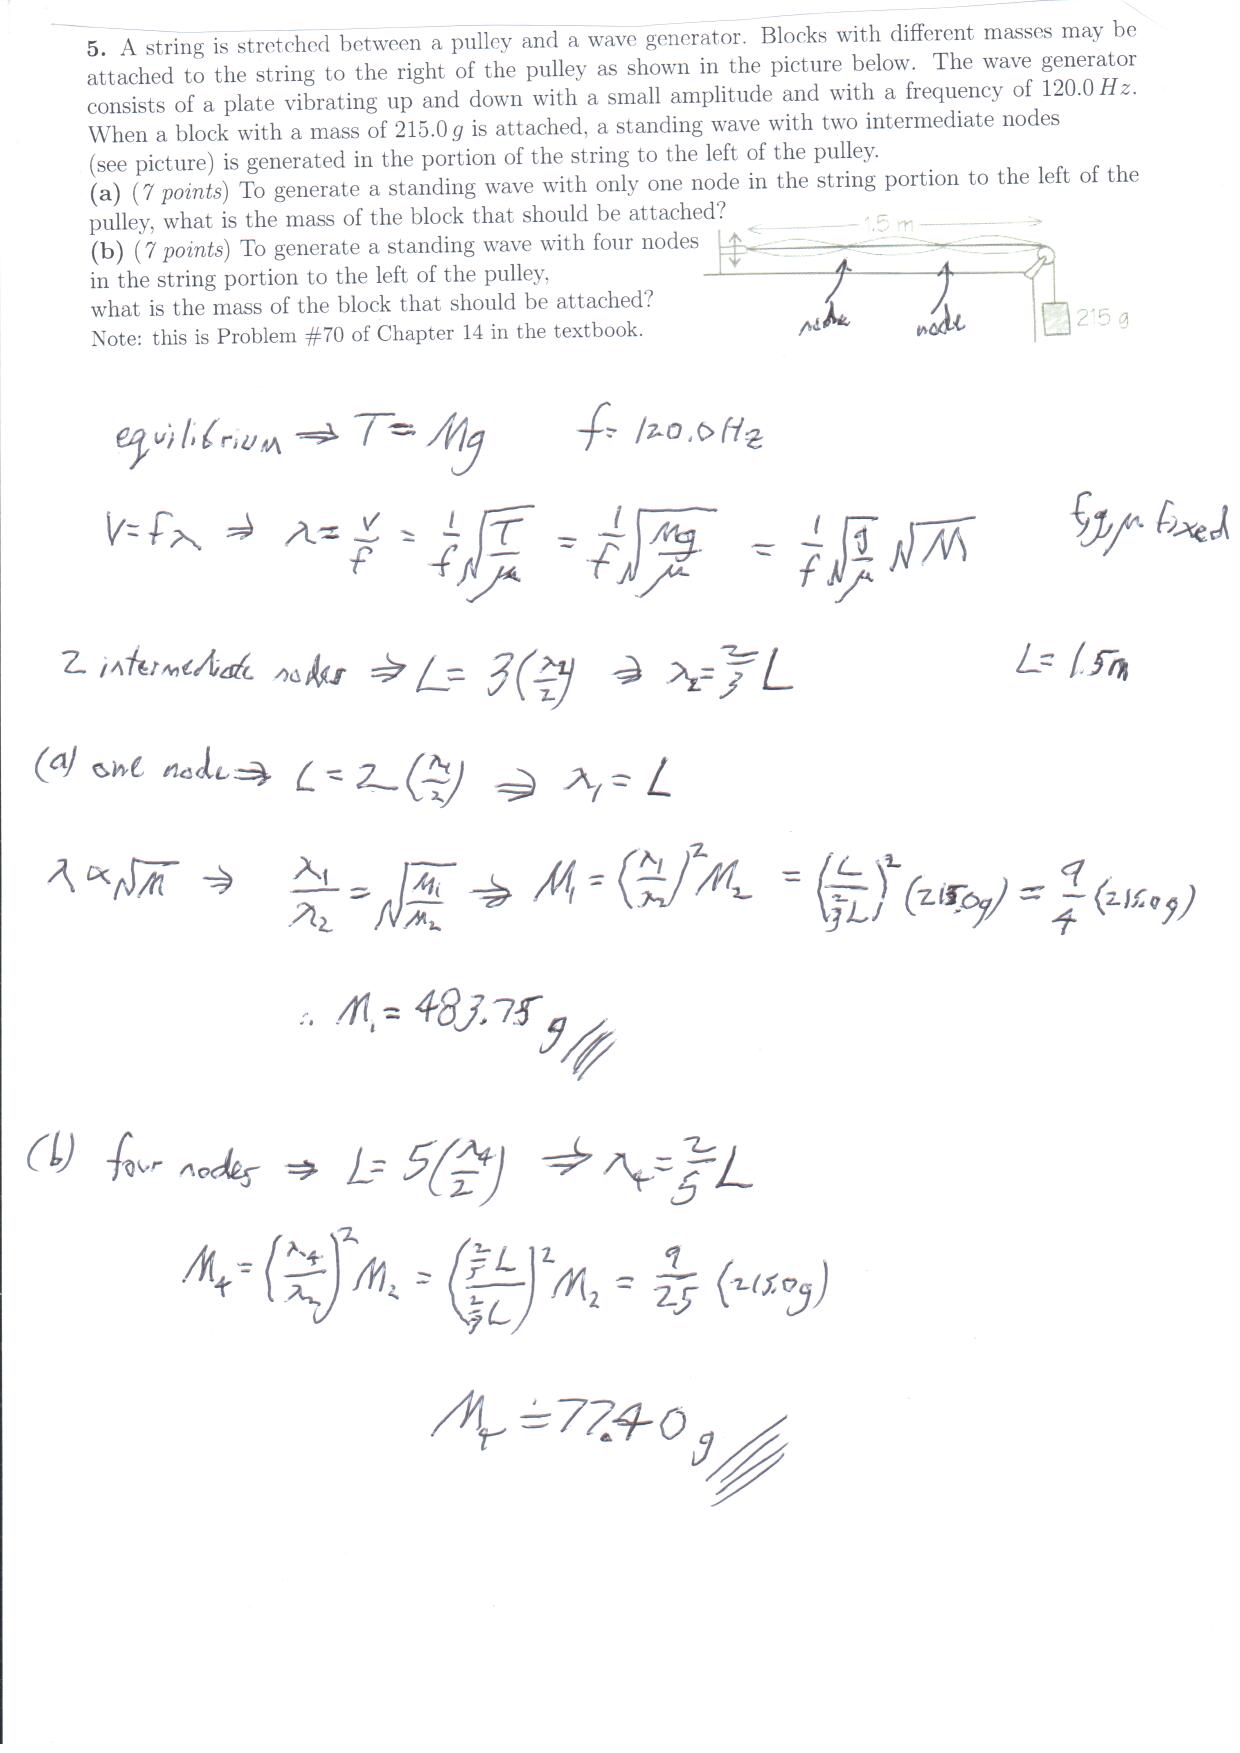 5. A string is stretched between a pulley and a wave generator. Blocks with different masses may be
attached to the string to the right of the pulley as shown in the picture below. The wave generator
consists of a plate vibrating up and down with a small amplitude and with a frequency of 120.0 Hz.
When a block with a mass of 215.0 g is attached, a standing wave with two intermediate nodes
(see picture) is generated in the portion of the string to the left of the pulley.
(a) (7 points) To generate a standing wave with only one node in the string portion to the left of the
pulley, what is the mass of the block that should be attached?
(b) (7 points) To generate a standing wave with four nodes
in the string portion to the left of the pulley,
what is the mass of the block that should be attached?
Note: this is Problem #70 of Chapter 14 in the textbook.
1.5 m
node node
215 g
equilibrium ⇒ T = Mg f = 120.0 Hz
V = fλ ⇒ λ = v/f = 1/f √(T/μ) = 1/f √(Mg/μ) = 1/f √(g/μ) √M f,g,μ fixed
2 intermediate nodes ⇒ L = 3(λ2/2) ⇒ λ2 = 2/3 L L = 1.5m
(a) one node ⇒ L = 2(λ1/2) ⇒ λ1 = L
λ ∝ √M ⇒ λ1/λ2 = √(M1/M2) ⇒ M1 = (λ1/λ2)² M2 = (L/(2/3 L))² (215.0g) = 9/4 (215.0g)
∴ M1 = 483.75 g
(b) four nodes ⇒ L = 5(λ4/2) ⇒ λ4 = 2/5 L
M4 = (λ4/λ2)² M2 = (2/5 L / 2/3 L)² M2 = 9/25 (215.0g)
M4 ≐ 77.40 g